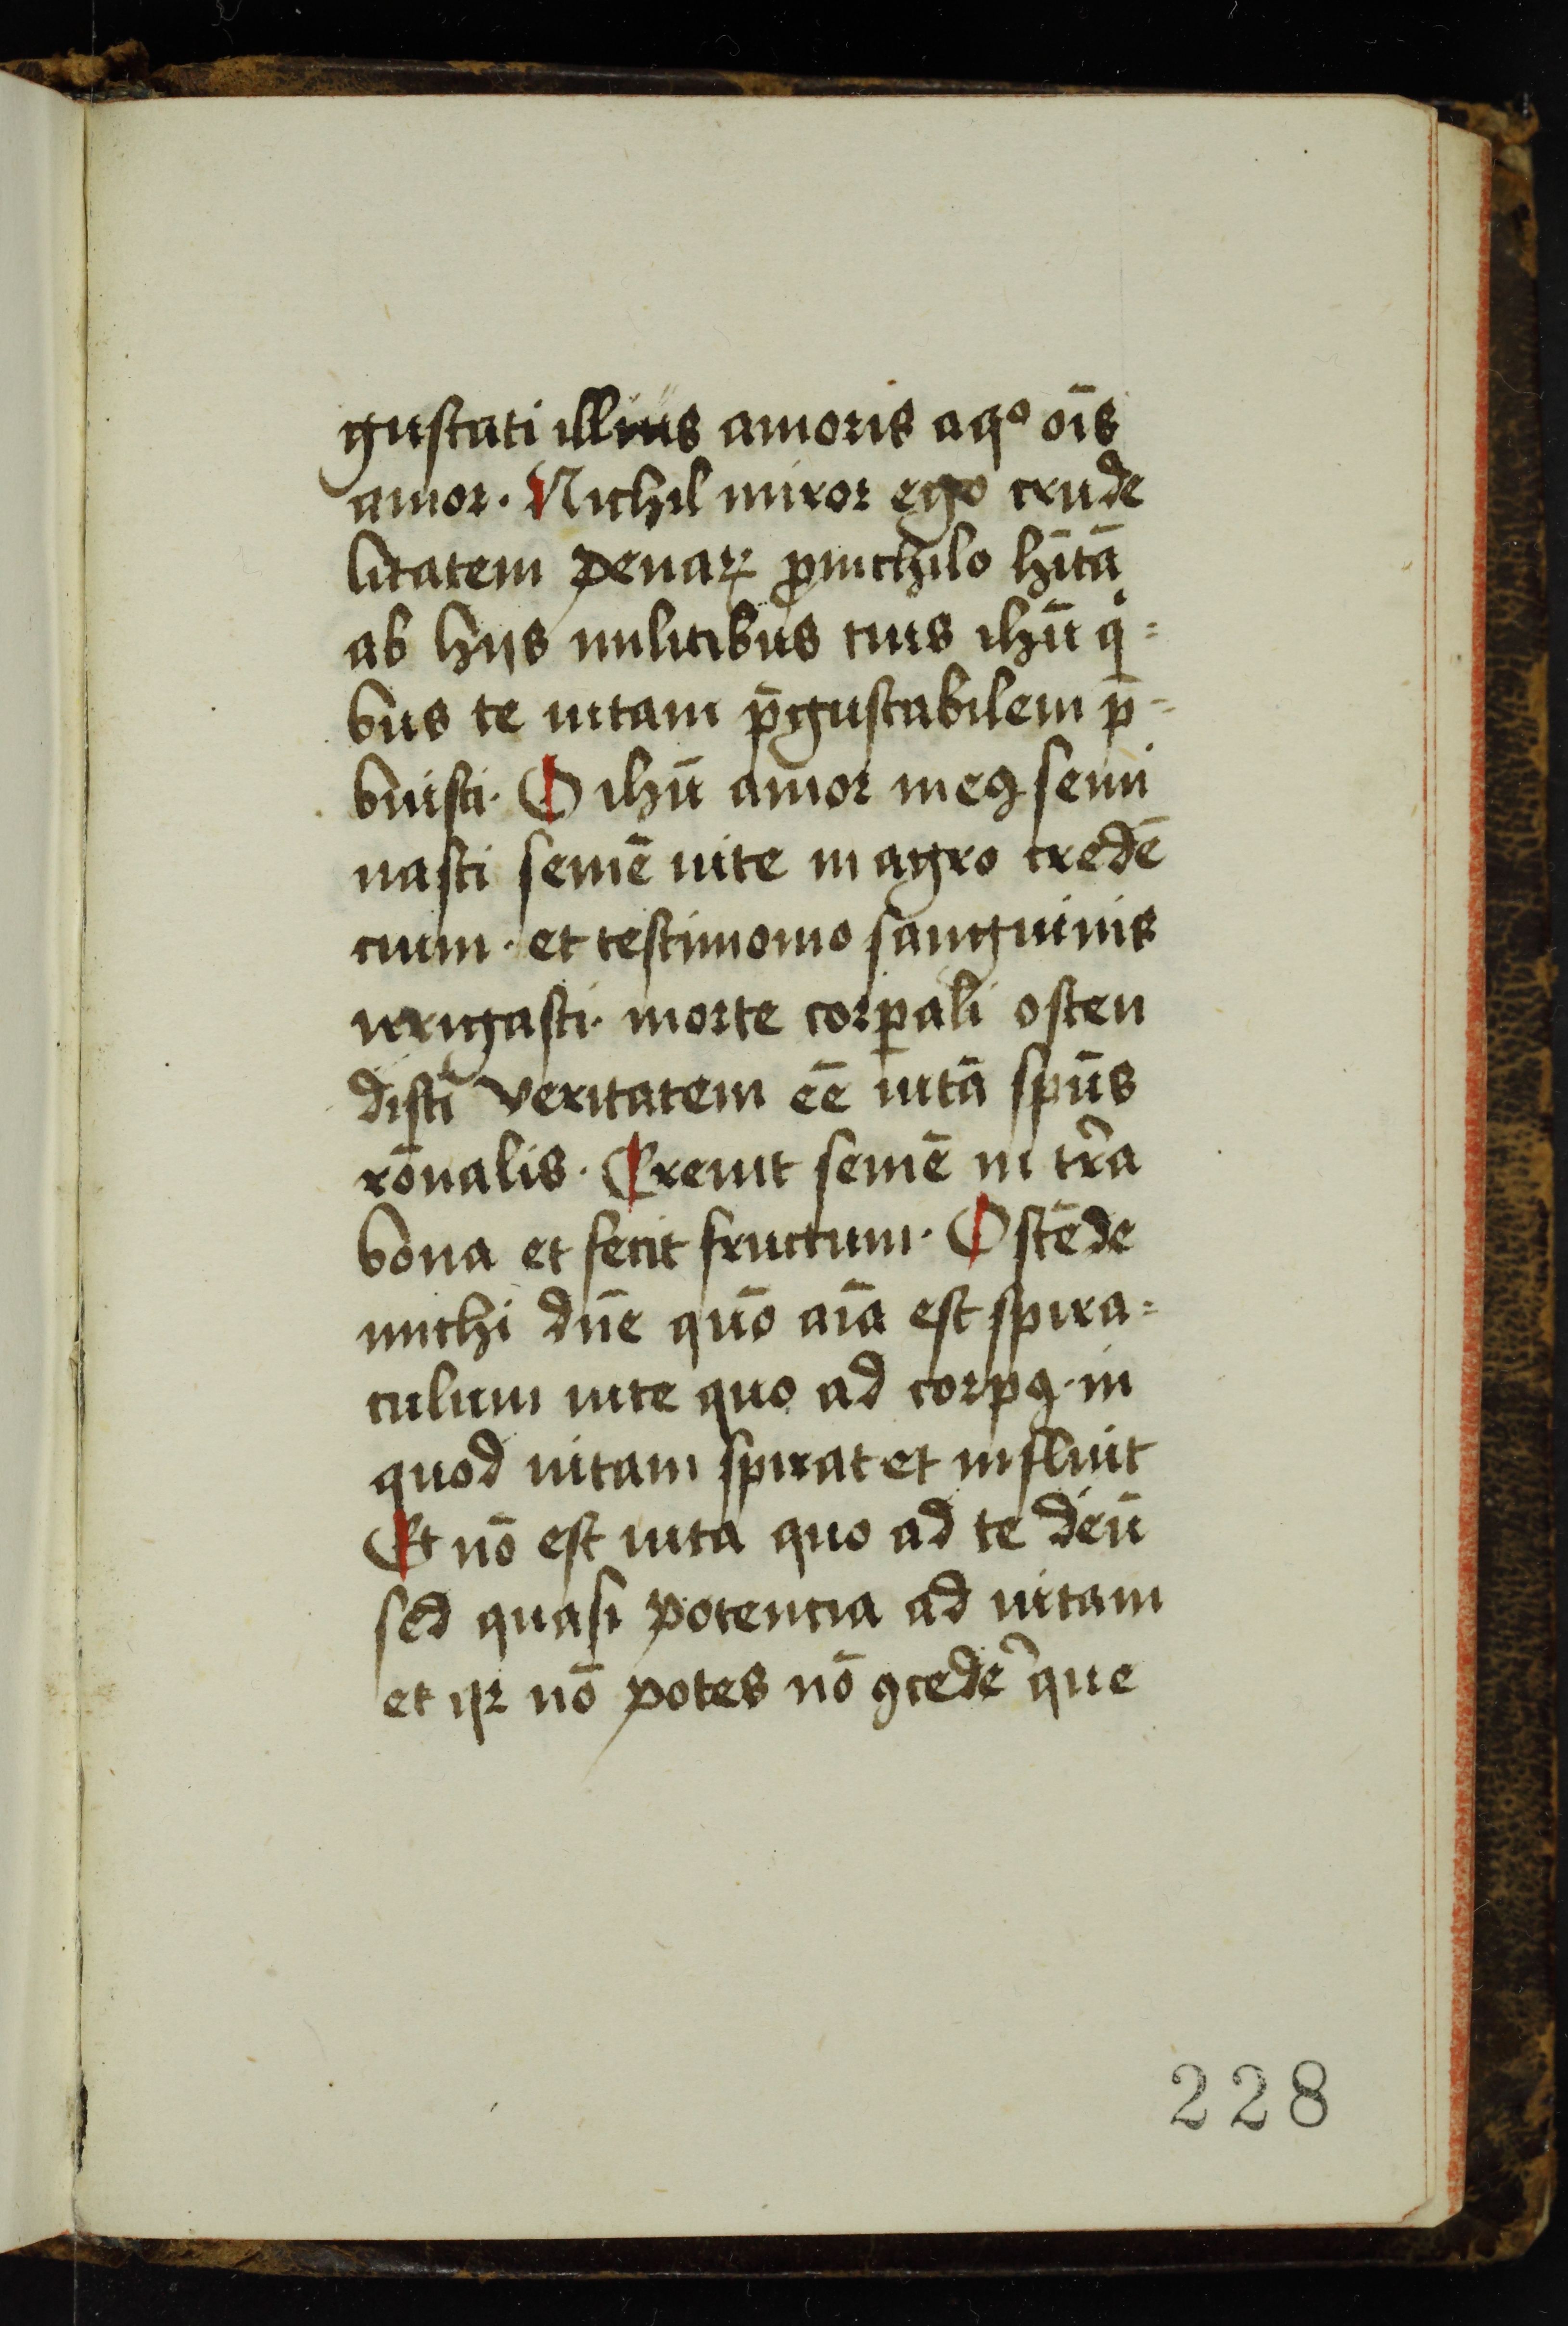 gustati illius amoris aqº oīs
amor. Nichil miror ego crude
litatem penaꝝ ꝓnichilo hītā
ab hijs militibus tuis ihū qͥ=
bus te uitam p̄gustabilem p̄=
buisti. O ihū amor meꝯ semi
nasti semē uite in agro credē
cium. et testimonio sanguinis
irrigasti. morte corꝑali osten
disti veritatem eē uitā spūs
rōnalis. Creuit semē in tr̄a
bona et fecit fructum. Ostēde
michi dn̄e quō aīa est spira=
culum uite quo ad corpꝯ. in
quod uitam spirat et influit
Et nō est uita quo ad te deū
sed quasi potencia ad uitam
et qꝛ nō potes nō ꝯcedeˀ que
228